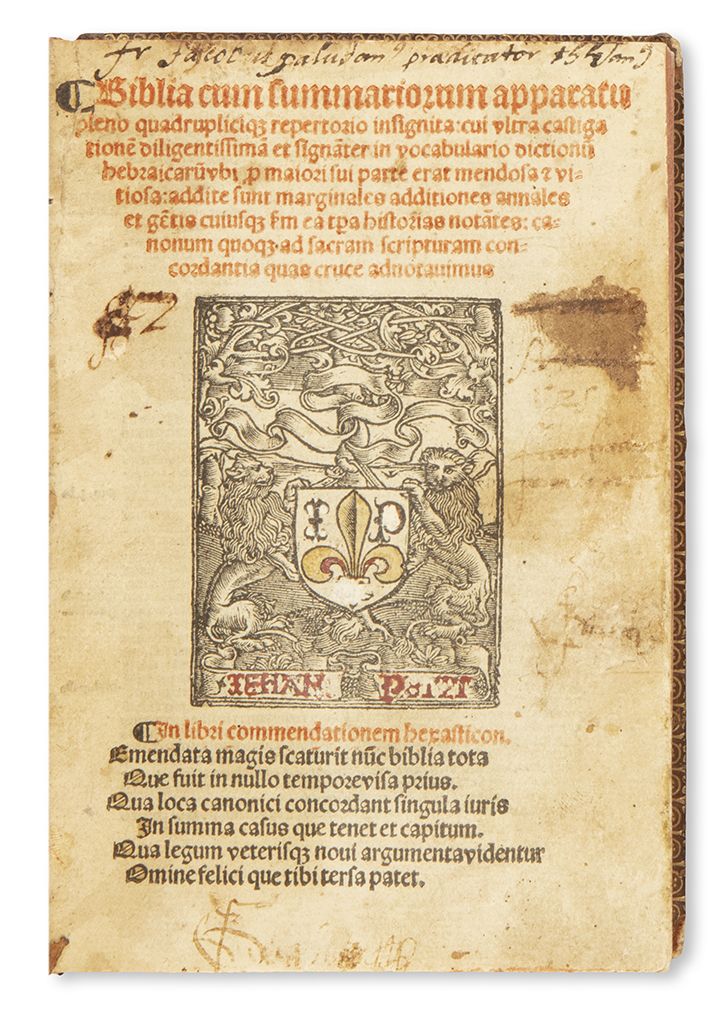 fr Jacobus paludanꝰ praedicator
Biblia cum summariorum apparatu
pleno quadrupliciqꝫ repertorio insignita: cui vltra castiga
tionē diligentissimā et signāter in vocabulario dictionū
hebraicarū vbi p maiori sui parte erat mendosa ⁊ vi⸗
tiosa: addite sunt marginales additiones annales
et gētis cuiusqꝫ fm ea tpa historias notātes: ca⸗
nonum quoqꝫ ad sacram scripturam con⸗
cordantia quas cruce adnotauimus
I P
IEHAN PETIT
¶ In libri commendationem hexasticon.
Emendata magis scaturit nūc biblia tota
Que fuit in nullo tempore visa prius.
Qua loca canonici concordant singula iuris
In summa casus que tenet et capitum.
Qua legum veterisqꝫ noui argumenta videntur
Omine felici que tibi tersa patet.